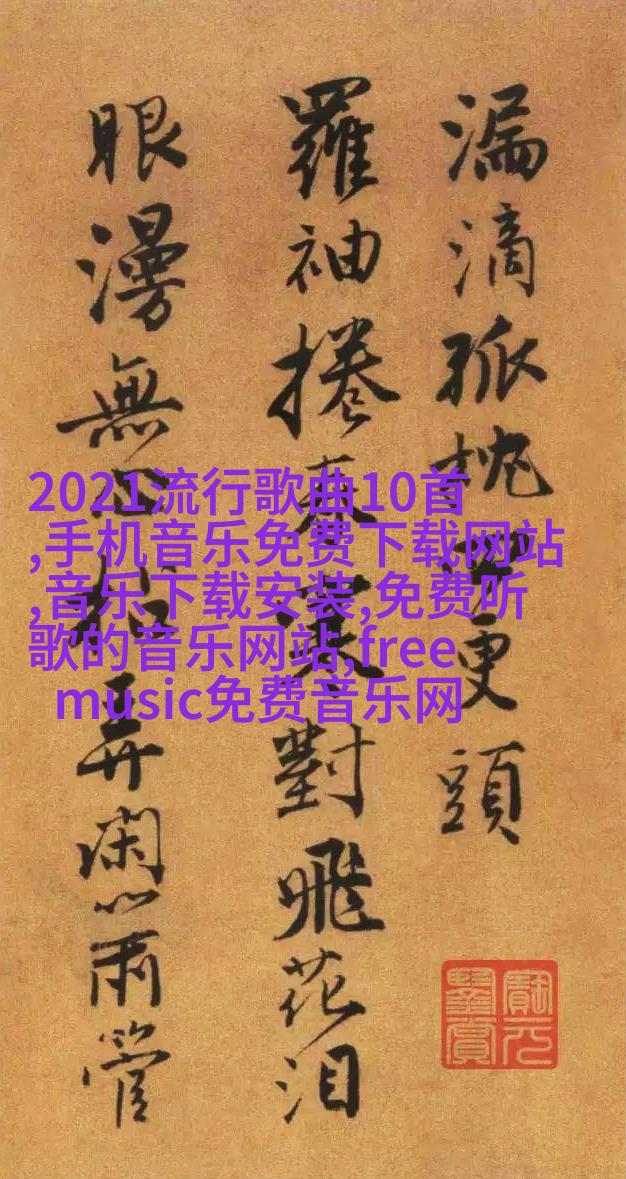 漏滴孤枕更頭
羅袖捲春寒對飛花泪
眼漫無心拈弄闲管
2021流行歌曲10首
,手机音乐免费下载网站
,音乐下载安装,免费听
歌的音乐网站,free
music免费音乐网